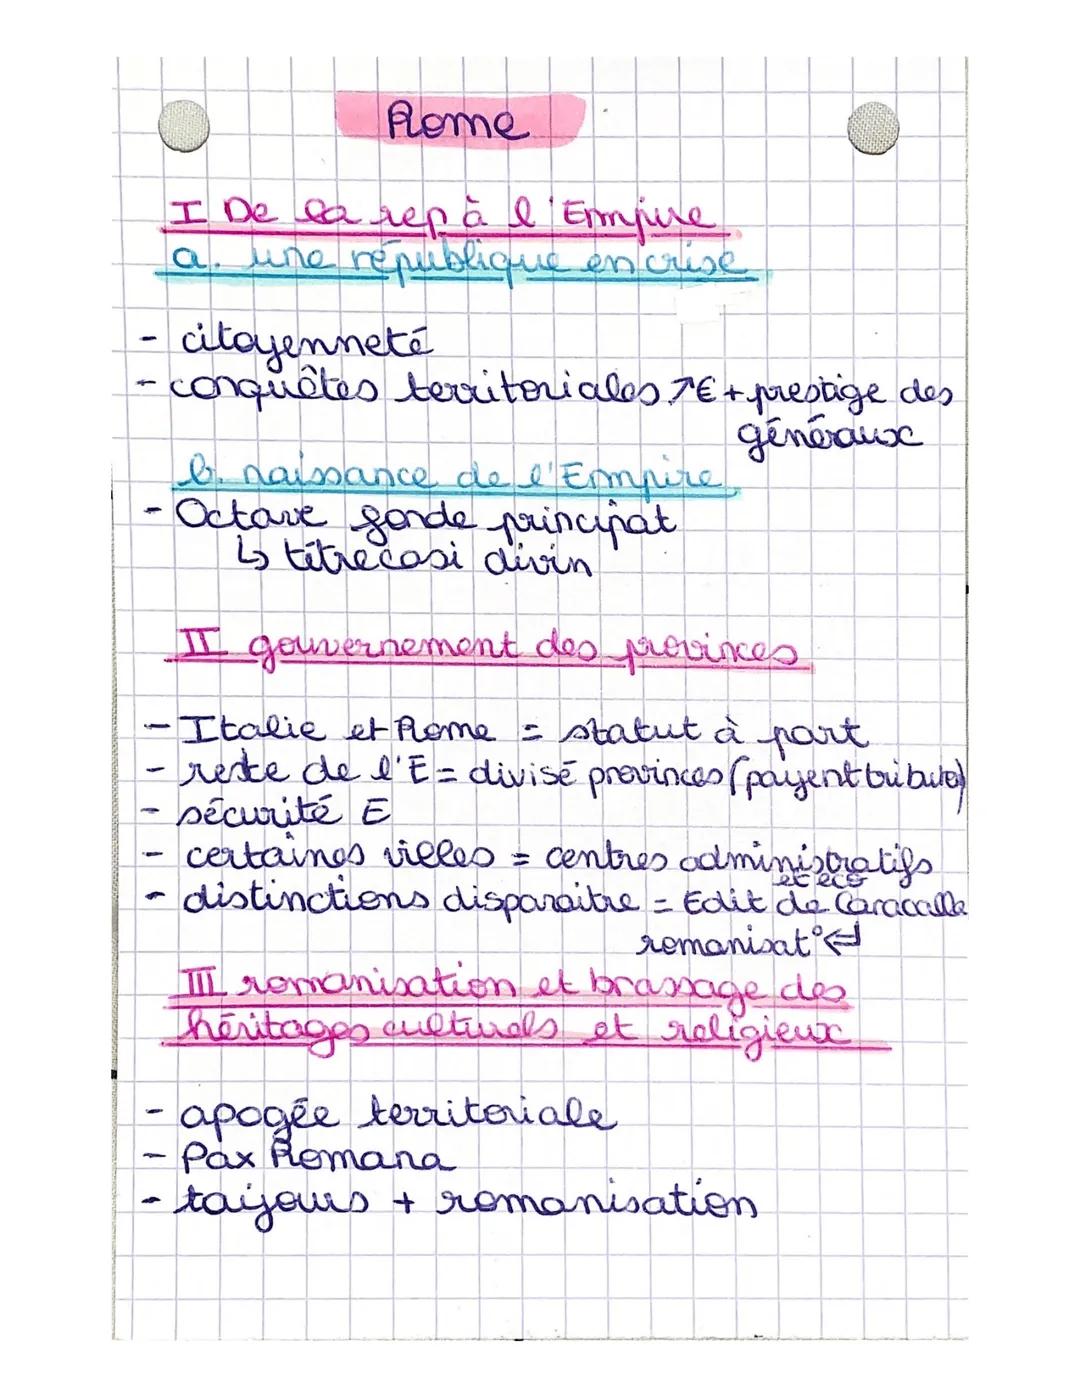 Rome
I De la rep à l'Empire
a. une république en crise
- citoyenneté
- conquêtes territoriales ↗€ + prestige des
généraux
b. naissance de l'Empire
- Octave fonde principat
↳ titre casi divin
II gouvernement des provinces
- Italie et Rome = statut à part
- reste de l'E = divisé provinces (payent tributes)
- sécurité E
- certaines villes = centres administratifs
et éco
- distinctions disparaitre = Edit de Caracalla
romanisat° ⇐
III romanisation et brassage des
héritages culturels et religieux
- apogée territoriale
- Pax Romana
- toujours + romanisation